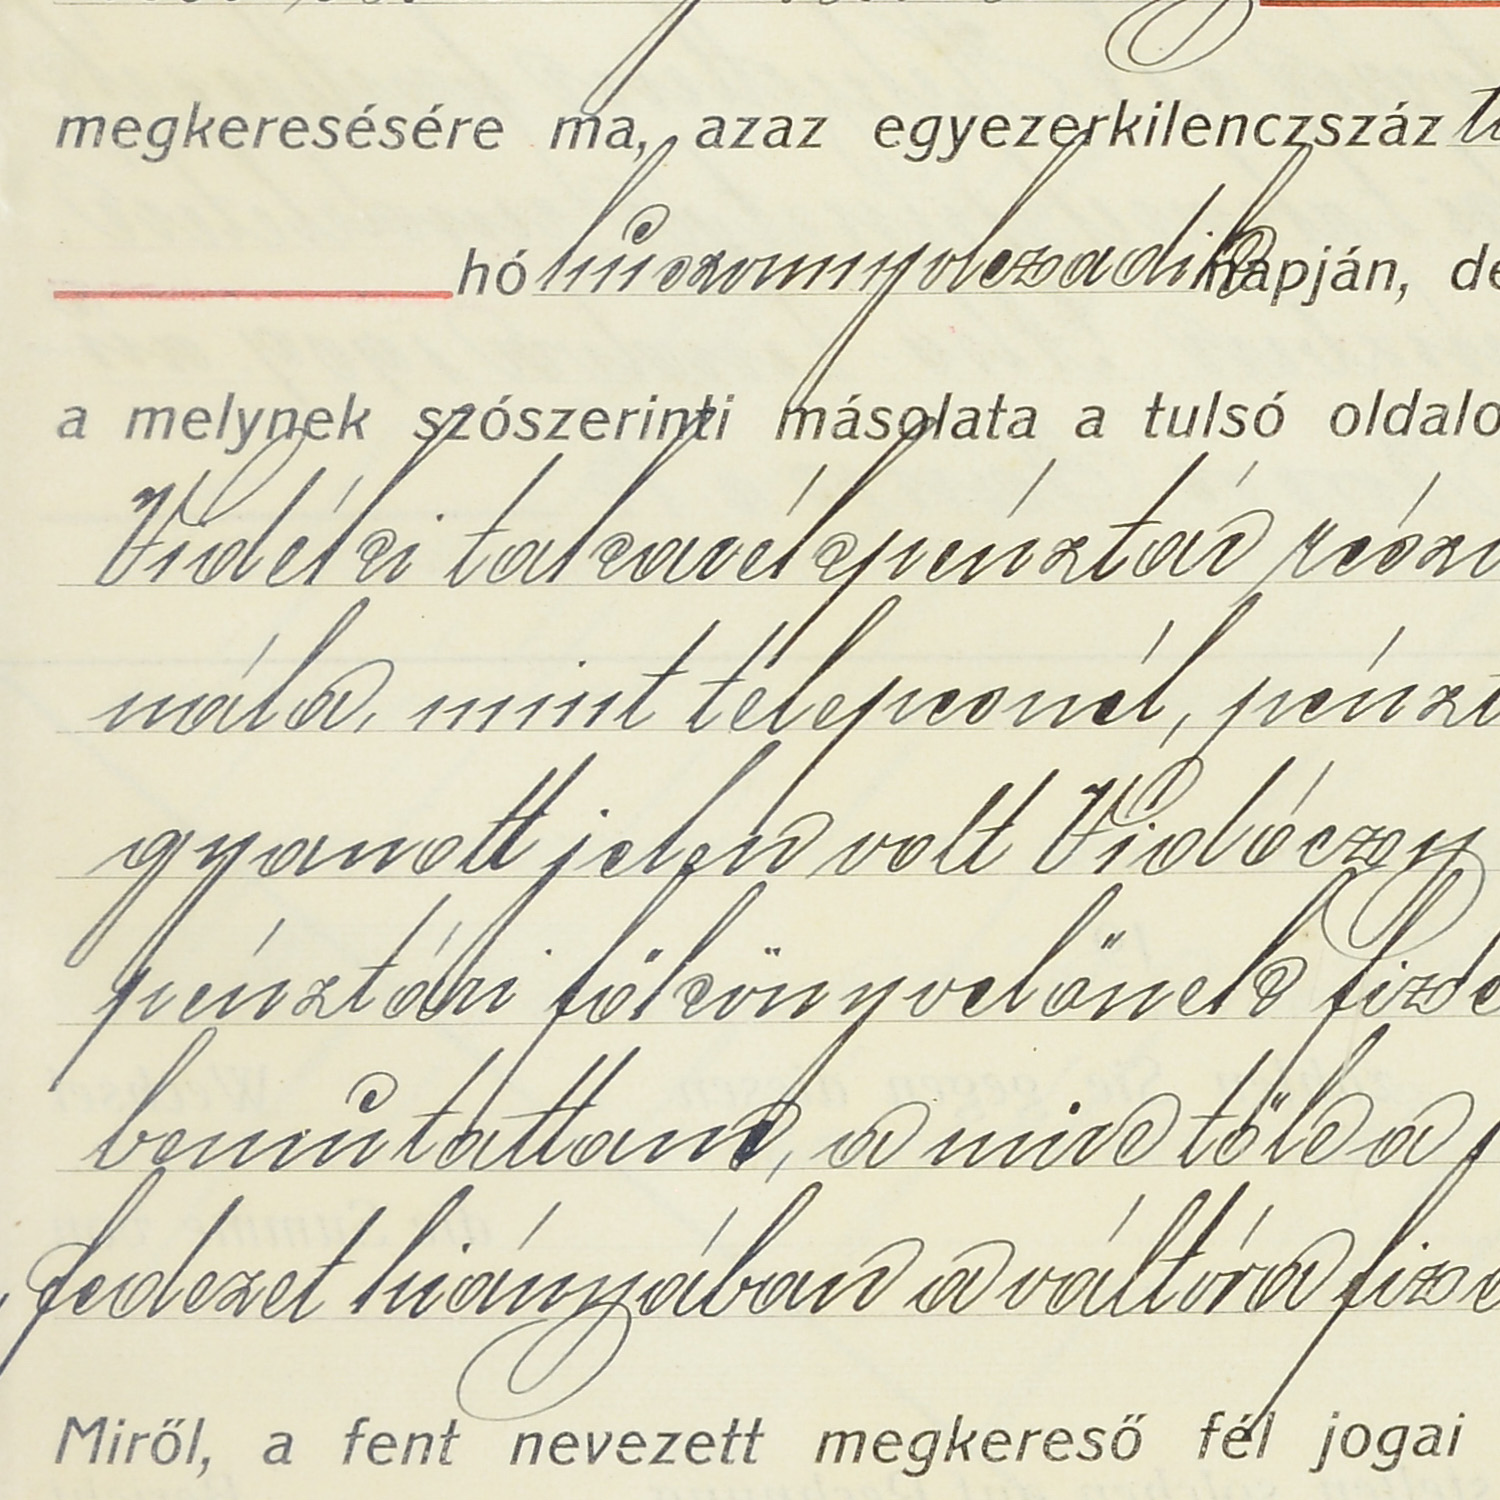 megkeresésére ma, azaz egyezerkilenczszáz
hó huszonnyolczadik napján, de
a melynek szószerinti másolata a tulsó oldalo
Vidéki takarékpénztár rész
nála, mint telepesnél, pénzt
gyanott jelen volt Vidóczy
pénztári főkönyvelőnek fize
bemutattam, a mire tőle a
fedezet hiányában a váltóra fize
Miről, a fent nevezett megkereső fél jogai